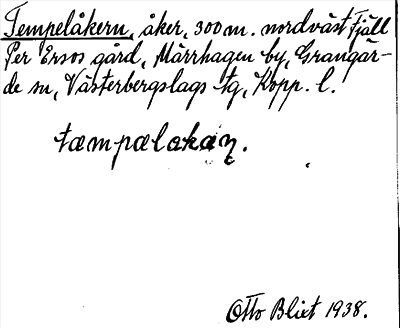 Tempelåkern, åker, 300 m. nordväst Fjäll
Per Ersos gård, Mårrhagen by, Grangär-
de sn, Västerbergslags tg, Kopp. l.
tæmpælakan.
Otto Blixt 1938.